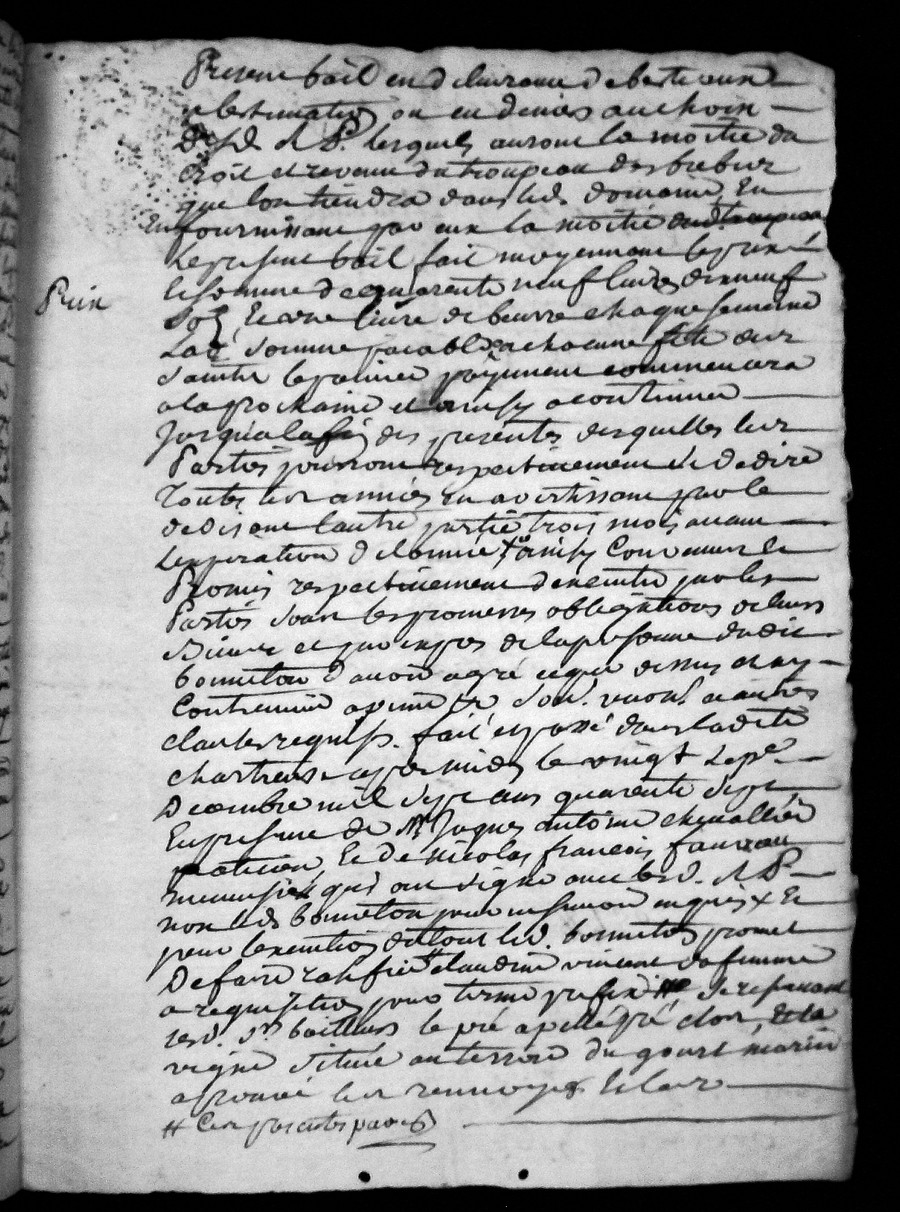 Present bail en delivrance de bestiaux
a lestimation ou en denier au choix
Desd. R P. lesquels auront la moitié du
Croit et revenu du troupeau des brebis
que lon tiendra dans led. domaine, En
En fournissant par eux la moitié dud. troupeau
Le present bail fait moyennant le prix
Prix
Et somme de quarente neuf livres dix neuf
sols, Et une livre de beurre chaque semaine
Lad. somme payable a chacune fete des
saints le premier payement commencera
a la prochaine et ainsy a continuer
Jusqua la fin des presentes desquelles les
Parties pourront respectivement se dedire
Toutes les années En avertissant par le
dedisant lautre partie trois mois avant
Lexpiration de lannée ainsy Convenu et
Promis respectivement dexecuter par les
Parties sous les promesses obligations de leurs
Biens et par expres de la personne dudit
bonneton davoir agré ce que dessus et ny
Contrevenir a peine &c soum. renon. et autres
clauses requises. fait et passé dans ladite
chartreuse apres midy le vingt sept
Decembre mil sept cens quarente sept,
En presence de Mr Jaques antoine chevallier
praticien Et de nicolas francois fauveau
menuisier qui ont signé avec lesd. R P
non led. bonneton pour ne scavoir enquis x Et
pour lexecution de tout led. bonneton promet
De faire ratifier # claudine vincent sa femme
a requisition pour terme prefix. Se reservant
lesd. Srs bailleurs le pré apellé gré clos, et la
vigne située au terroir du gourt marin
aprouvé les renvoyes Et leur
# Ces presentes par